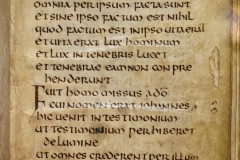 omnia per ipsum facta sunt
et sine ipso factum est nihil
quod factum est in ipso uita erat
et uita erat lux hominum
et lux in tenebris lucet
et tenebrae eam non con pre
henderunt
Fuit homo missus a do
cui nomen erat iohannes
hic uenit in testimonium
ut testimonium perhiberet
de lumine
ut omnes crederent per illum